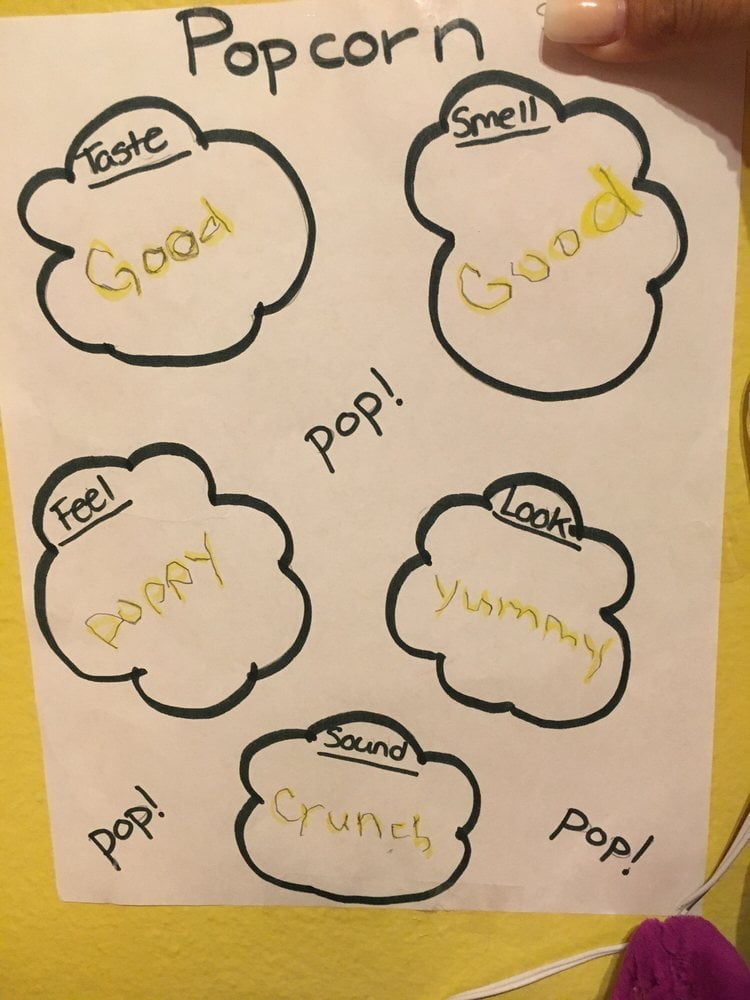 Popcorn
Taste
Good
Smell
Good
pop!
Feel
poppy
Look
yummy
Sound
Crunch
pop!
Pop!